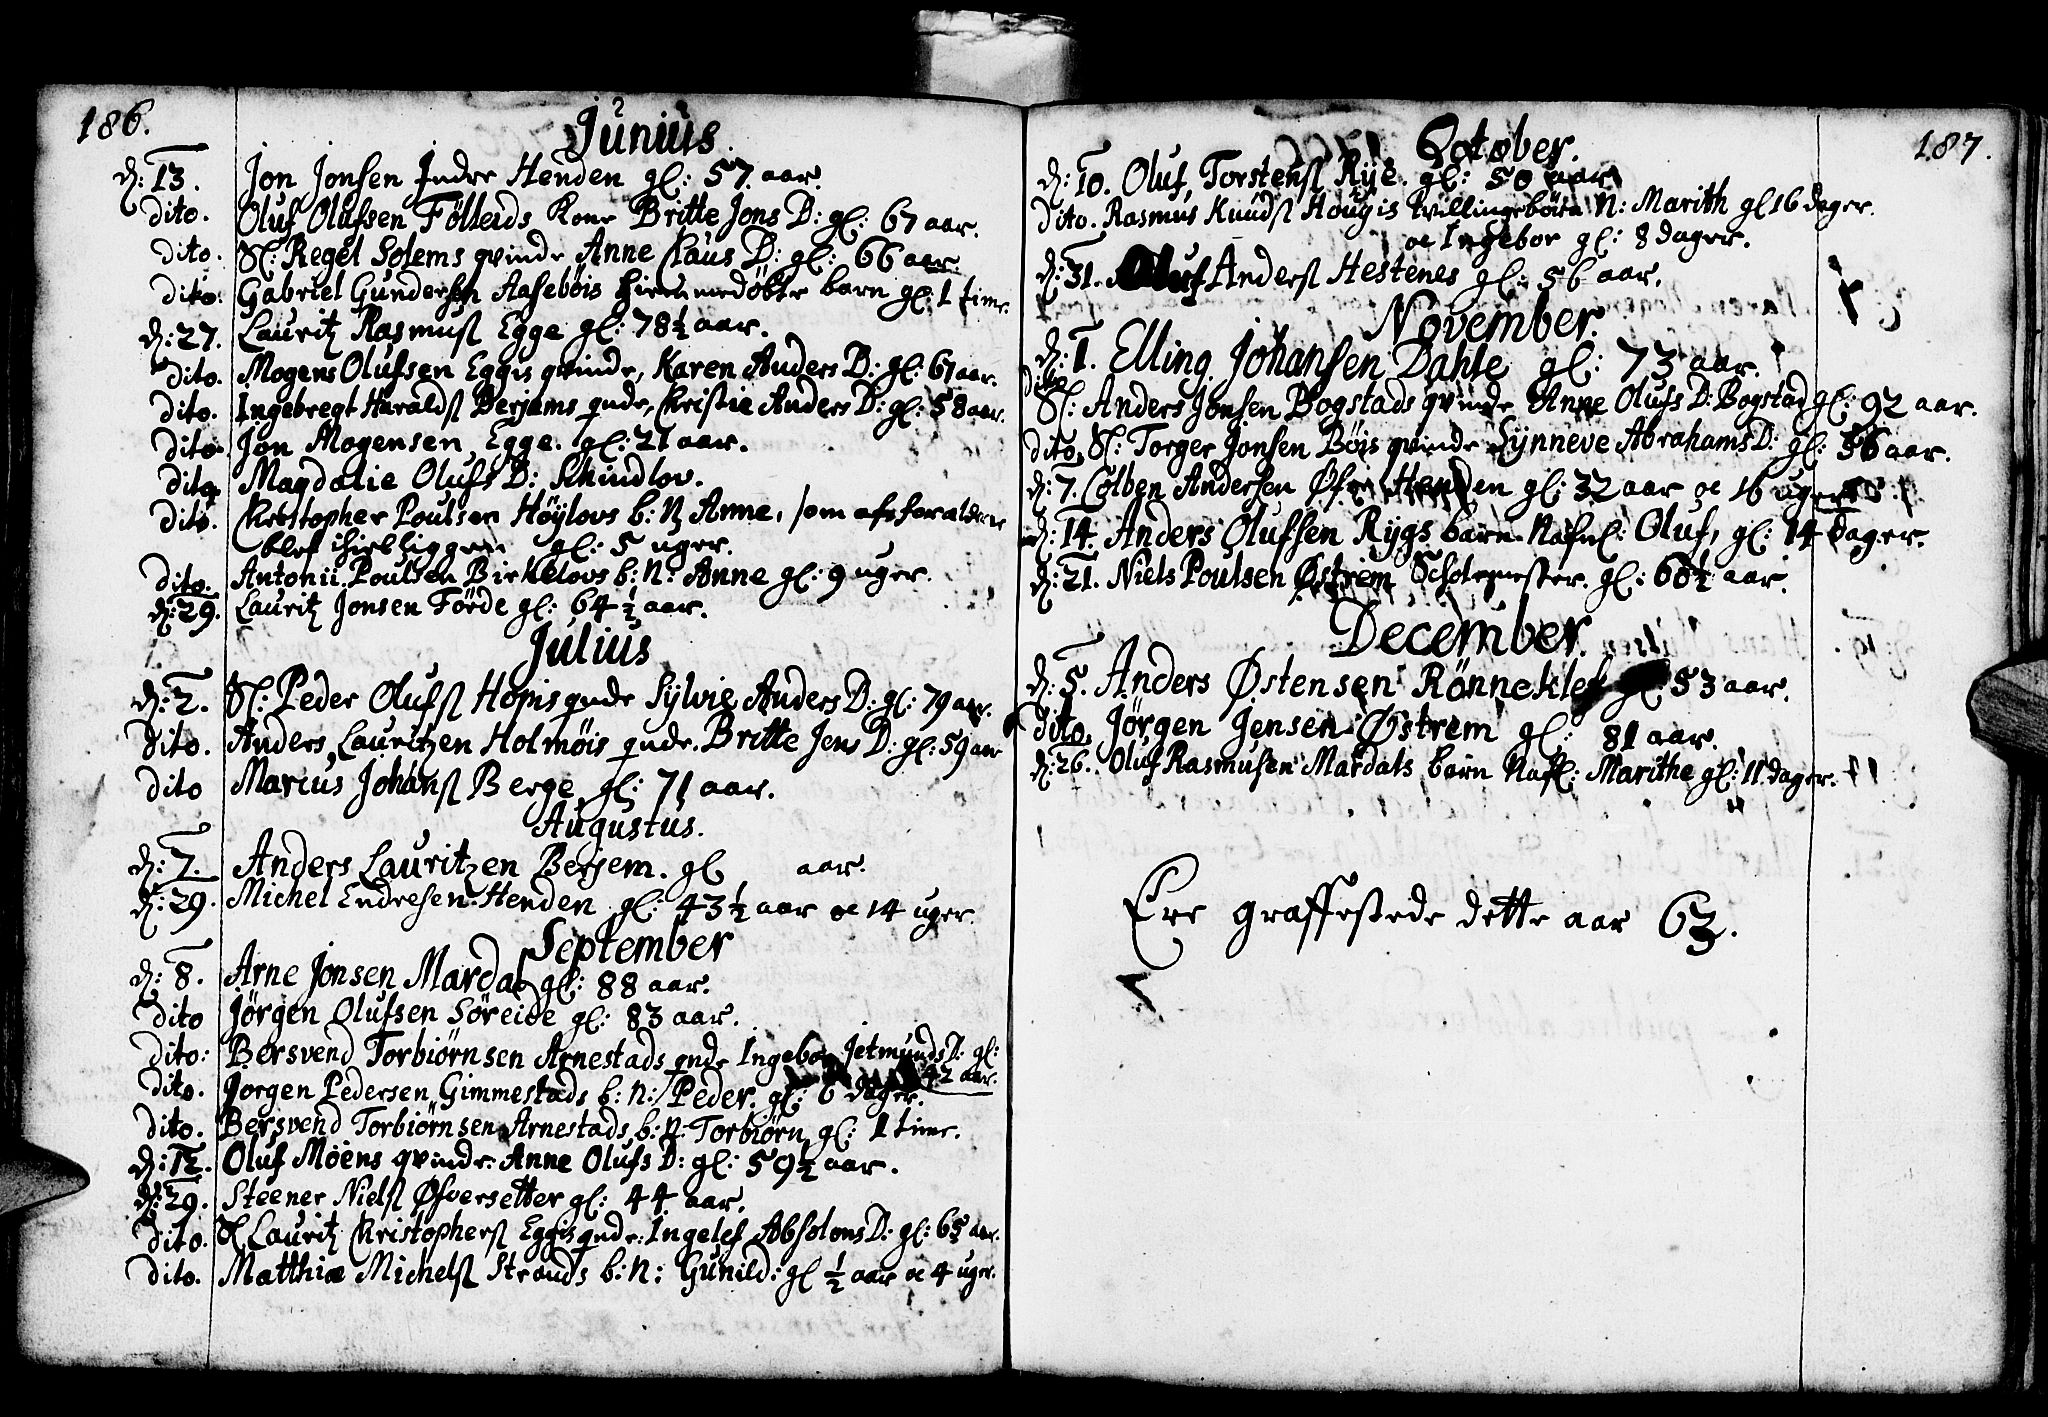 186.
Junius.
d: 13. Jon Jonsen Indre Henden gl: 57. aar.
dito. Oluf Olufsen Föllerds Kone Britte Jons D: gl: 67 aar.
dito. Sl: Regel Solems qvinde Anne Claus D: gl: 66 aar.
dito. Gabriel Gundersen Aasebøis hiemmedøbte barn gl: 1 time.
d: 27. Lauritz Rasmuss Egge gl: 78½ aar.
dito. Mogens Olufsen Eggis qvinde, Karen Anders D: gl: 61 aar.
dito. Ingebregt Haralds Berjems qnde, Christie Anders D: gl: 58 aar.
dito. Jon Mogensen Egge. gl: 21 aar.
dito. Magdalie Olufs D: Schindlov.
dito. Christopher Poulsen Höylovs b: N Anne, som af foraldrene
blef ihielliggen gl: 5 uger.
dito. Antonii Poulsen Birkelovs b: N: Anne gl: 9 uger.
d: 29. Lauritz Jonsen Förde gl: 64½ aar.
Julius
d: 2. Sl: Peder Olufs Hopis qnde Sylvie Anders D: gl: 79 aar.
dito. Anders Lauritzen Holmøis qnde. Britte Jens D: gl: 59 aar
dito Marcus Johans Berge gl: 71 aar.
Augustus.
d: 7. Anders Lauritzen Berjem. gl aar.
d: 29. Michel Endresen Henden gl: 43½ aar oc 14 uger.
September
d: 8. Arne Jonsen Mardal gl: 88 aar.
dito Jørgen Olufsen Söreide gl: 83 aar.
dito: Bersvend Torbiørnsen Arnestads qnde Ingebor Jetmunds D: gl:
42 aar.
dito. Jorgen Pedersen Gimmestads b: N: Peder. gl: 6 dager.
dito. Bersvend Torbiörnsen Arnestads b: N: Torbiörn gl: 1 time.
d: 12. Oluf Möens qvinde Anne Olufs D: gl: 59½ aar.
d: 29. Steener Niels Øfversetter gl: 44 aar.
dito. Sl Lauritz Christophers Eggis qnde: Ingelef Absolons D: gl: 65 aar.
dito. Matthiæ Michels Strands b: N: Gunild: gl ½ aar oc 4 uger.
187.
October.
d: 10. Oluf Torstens Rye. gl: 50 aar
dito. Rasmus Knuds Hougis tvillingebörn N: Marith gl 16 dager.
oc Ingebor gl: 8 dager.
d: 31. Oluf Anders Hestenes gl: 56 aar.
November.
d: 1. Elling Johansen Dahle gl: 73 aar.
dito Sl: Anders Jonsen Bogstads qvinde Anne Olufs D: Bogstad gl: 92 aar.
dito, Sl: Torger Jonsen Böis qvinde Synneve Abrahams D: gl: 56 aar.
d: 7. Colben Andersen Øfre Henden gl: 32 aar oc 16 uger
d: 14. Anders Olufsen Rygs barn Nafnl: Oluf, gl: 14 dager.
d: 21. Niels Poulsen Østrem Scholemester. gl: 60½ aar.
December.
d: 5. Anders Østensen Rönneklef gl: 53 aar.
dito. Jørgen Jensen Østrem gl: 81 aar.
d: 26. Oluf Rasmusen Mardals barn Nafl: Marithe gl: 11 dager.
Ere graffestede dette aar 63.